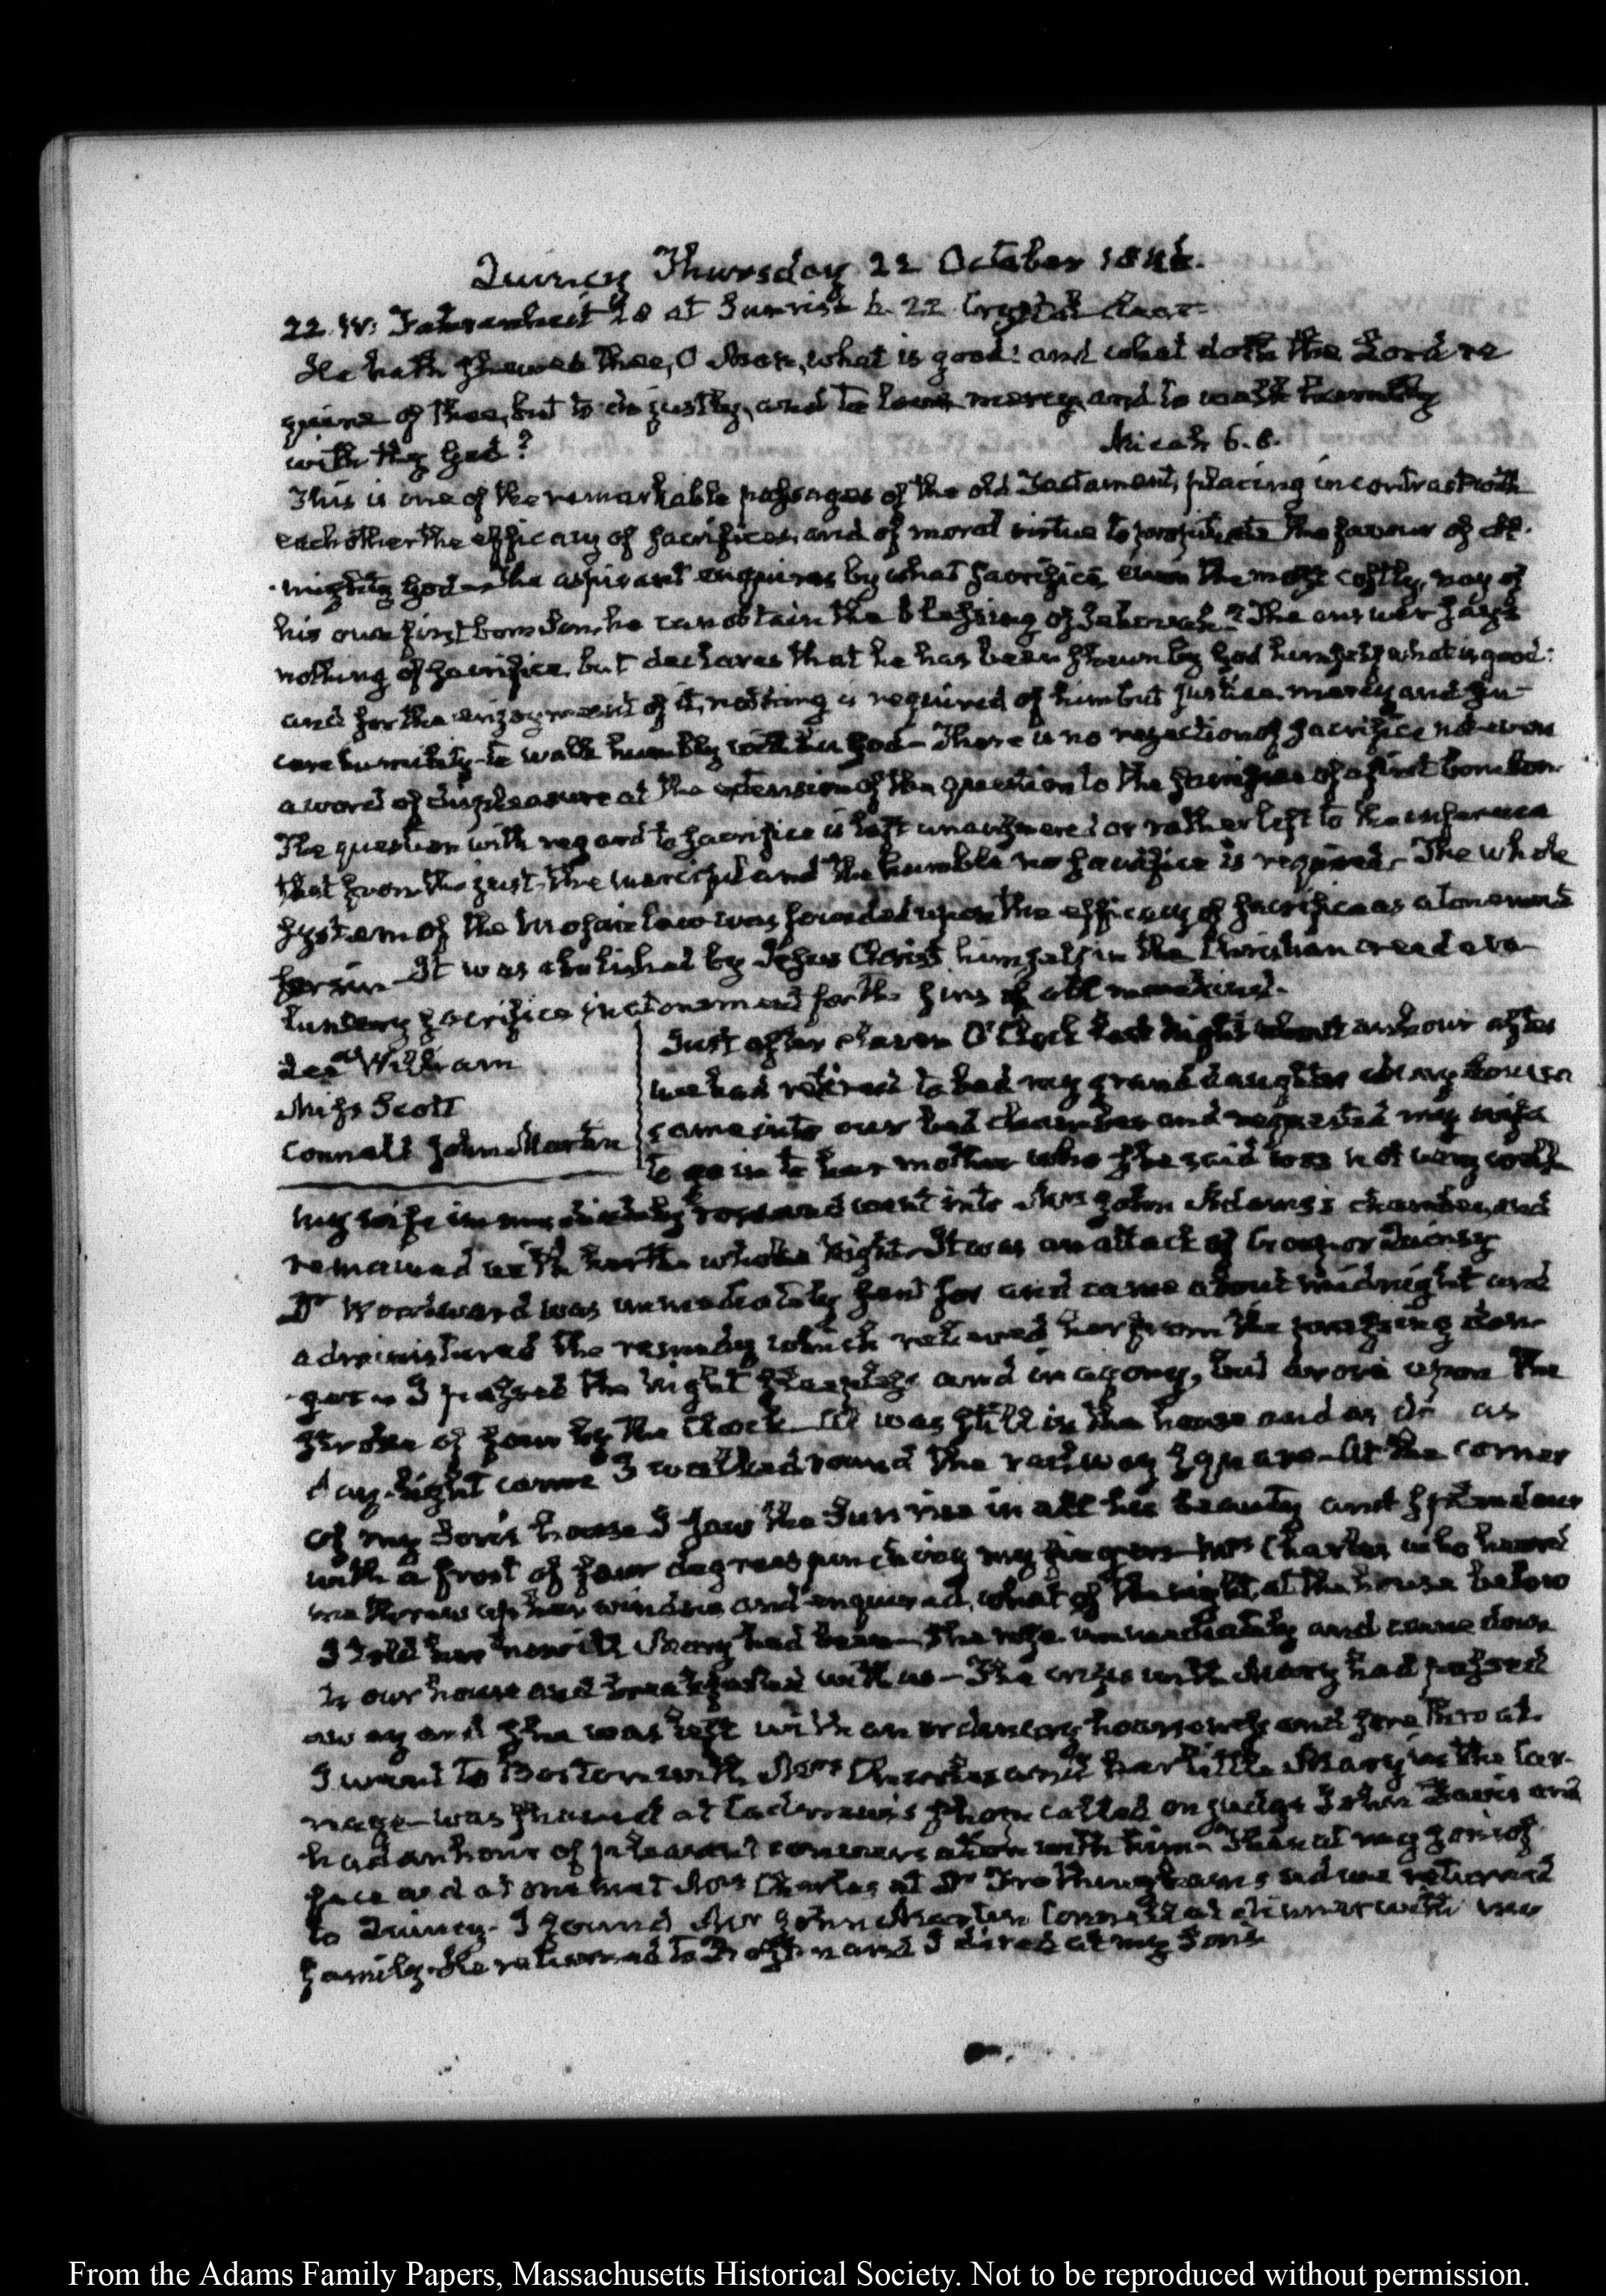 Quincy Thursday 22 October 1846.
22. IV. Fahrenheit 28 at Sunrise 6.22 Crystal clear
He hath shewed thee, O Man, what is good: and what doth the Lord re
quire of thee, but to do justly, and to love mercy, and to walk humbly
with thy God? Micah 6.8.
This is one of the remarkable passages of the old Testament, placing in contrast with
each other the efficacy of sacrifices, and of moral virtue to propitiate the favour of Al-
mighty God— The aspirant enquires by what sacrifice, even the most costly, nay of
his own first born Son, he can obtain the blessing of Jehovah? The answer says
nothing of sacrifice, but declares that he has been shown by God himself what is good:
and for the enjoyment of it, nothing is required of him but justice, mercy and sin-
cere humility— to walk humbly with his God— There is no rejection of sacrifice not even
a word of displeasure at the extension of the question to the sacrifice of a first born Son
The question with regard to sacrifice is left unanswered or rather left to the inference
that from the just, the merciful and the humble no sacrifice is required— The whole
system of the Mosaic law was founded upon the efficacy of sacrifice as atonement
for sin— It was abolished by Jesus Christ himself in the Christian creed a vo-
luntary sacrifice in atonement for the sins of all mankind.
Lee William
Miss Scott
Connell John Martin
Just after eleven O'Clock last night about an hour after
we had retired to bed my grand daughter Mary Louisa
came into our bed chamber and requested my wife
to go in to her mother who she said was not very well
My wife immediately rose and went into Mrs John Adams's chamber, and
remained with her the whole Night— It was an attack of Croup or Quinsy
Dr Woodward was immediately sent for and came about midnight and
administered the remedy which relieved her from the pressing dan-
ger— I passed the night sleepless and in agony, but arose upon the
stroke of four by the Clock— All was still in the house and as as
day-light came I walked round the railway square— At the corner
of my Son's house I saw the Sun rise in all his beauty and splendour
with a frost of four degrees pinching my fingers— Mrs Charles who heard
me threw up her window and enquired, what of the night, at the house below
I told her how ill Mary had been— She rose immediately and came down
to our house and breakfasted with us— The crisis with Mary had passed
away and she was left with an ordinary hoarseness and sore throat.
I went to Boston with Mrs Charles and her little Mary in the Car-
riage— was shaved at shop called on Judge John Davis and
had an hour of pleasant conversation with him— Then at my Son's of-
fice and at one met Mrs Charles at Dr Frothingham's and we returned
to Quincy— I found Mr John Martin Connell at dinner with my
family— He returned to Boston and I dined at my Son's
From the Adams Family Papers, Massachusetts Historical Society. Not to be reproduced without permission.